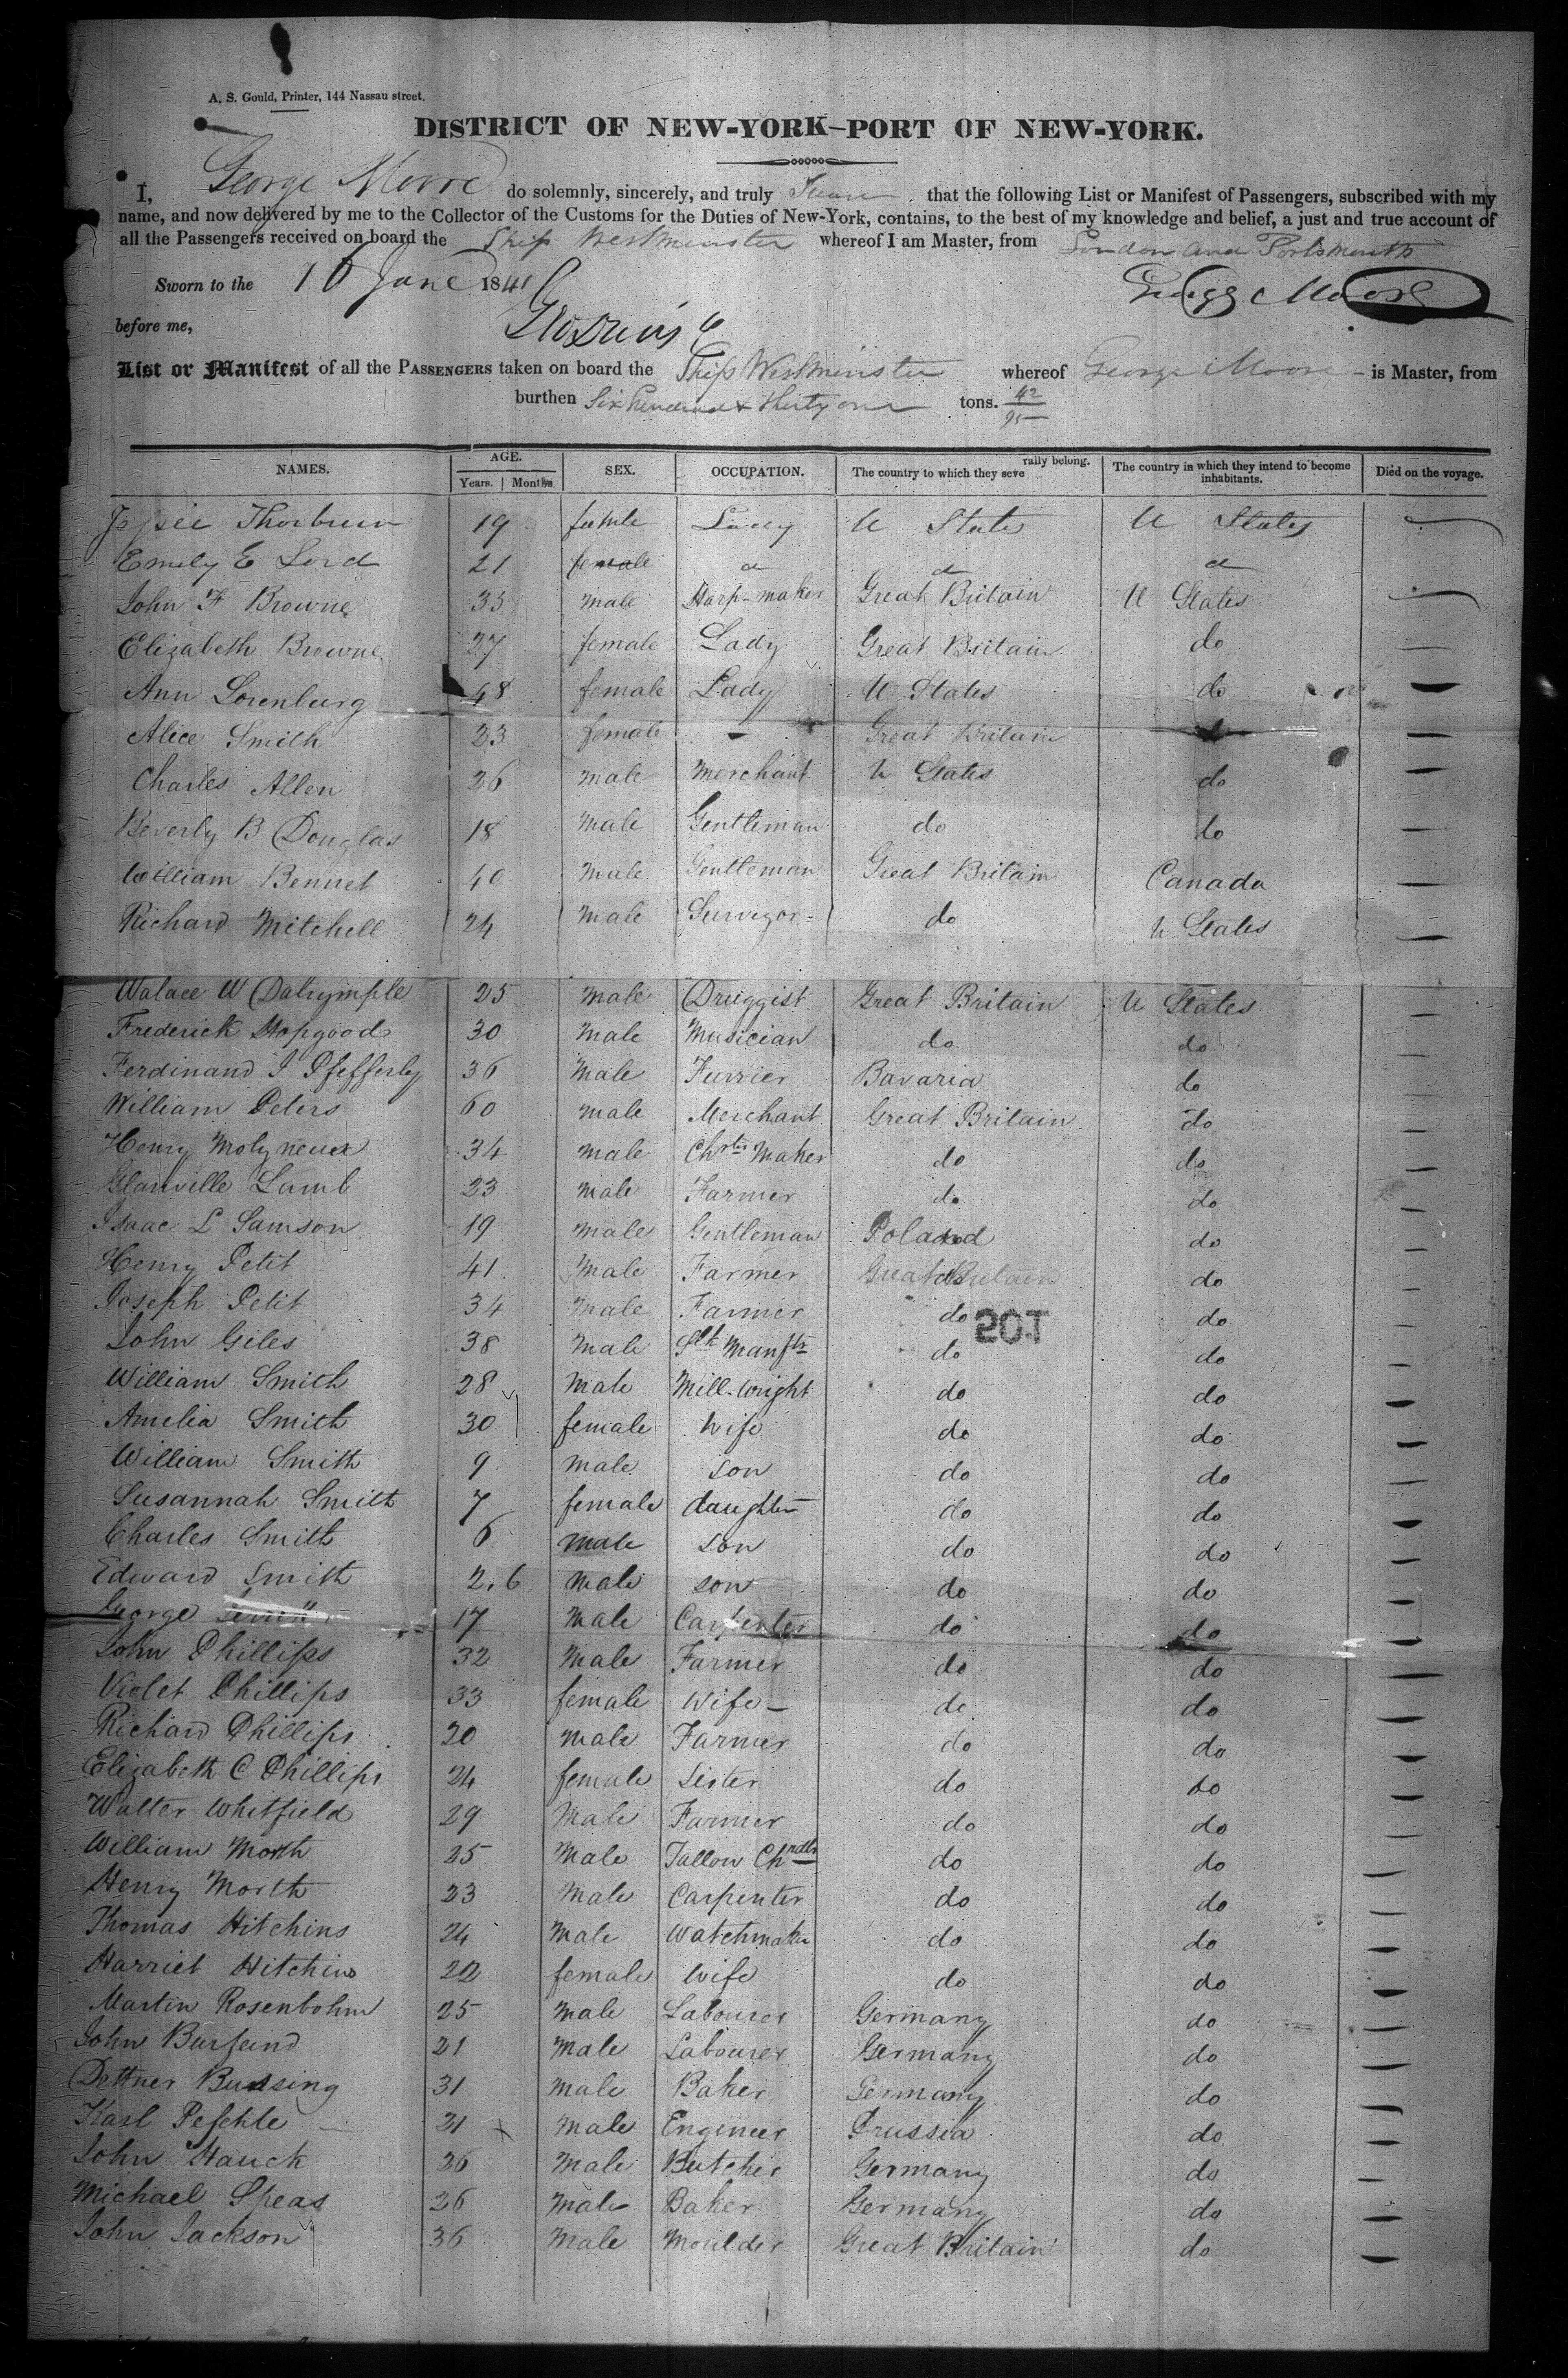 A. S. Gould, Printer, 144 Nassau street.
DISTRICT OF NEW-YORK—PORT OF NEW-YORK.
I, George Moore do solemnly, sincerely, and truly Swear that the following List or Manifest of Passengers, subscribed with my
name, and now delivered by me to the Collector of the Customs for the Duties of New-York, contains, to the best of my knowledge and belief, a just and true account of
all the Passengers received on board the Ship Westminster whereof I am Master, from London and Portsmouth
Sworn to the 16 June 1841 George Moore
before me,
List or Manifest of all the PASSENGERS taken on board the Ship Westminster whereof George Moore is Master, from
burthen Six hundred & thirty one tons. 42/95
NAMES. AGE. Years. Months SEX. OCCUPATION. The country to which they severally belong. The country in which they intend to become inhabitants. Died on the voyage.
Jessie Thorburn 19 female Lady U States U States
Emily E Lord 21 female do do do
John F Browne 35 male Harp-maker Great Britain U States
Elizabeth Browne 27 female Lady Great Britain do
Ann Lorenburg 48 female Lady U States do
Alice Smith 23 female - Great Britain do
Charles Allen 26 male Merchant U States do
Beverly B Douglas 18 male Gentleman do do
William Bennet 40 male Gentleman Great Britain Canada
Richard Mitchell 24 male Surveyor do U States
Walace W Dalrymple 25 male Druggist Great Britain U States
Frederick Hopgood 30 male Musician do do
Ferdinand I Pfefferley 36 male Furrier Bavaria do
William Peters 60 male Merchant Great Britain do
Henry Molyneux 34 male Maker do do
Glanville Lamb 23 male Farmer do do
Isaac L Samson 19 male Gentleman Poland do
Henry Petit 41 male Farmer Great Britain do
Joseph Petit 34 male Farmer do do
John Giles 38 male Slk Manftr do do
William Smith 28 male Mill-wright do do
Amelia Smith 30 female Wife do do
William Smith 9 male son do do
Susannah Smith 7 female daughter do do
Charles Smith 6 male son do do
Edward Smith 2.6 male son do do
George 17 male Carpenter do do
John Phillips 32 male Farmer do do
Violet Phillips 33 female Wife do do
Richard Phillips 20 male Farmer do do
Elizabeth C Phillips 24 female Sister do do
Walter Whitfield 29 male Farmer do do
William Morth 25 male Tallow Chndlr do do
Henry Morth 23 male Carpenter do do
Thomas Hitchins 24 male Watchmaker do do
Harriet Hitchins 22 female Wife do do
Martin Rosenbohm 25 male Labourer Germany do
John Burfeind 21 male Labourer Germany do
Dettner Bussing 31 male Baker Germany do
Karl Peschle 31 male Engineer Prussia do
John Hauck 26 male Butcher Germany do
Michael Speas 26 male Baker Germany do
John Jackson 36 male Moulder Great Britain do